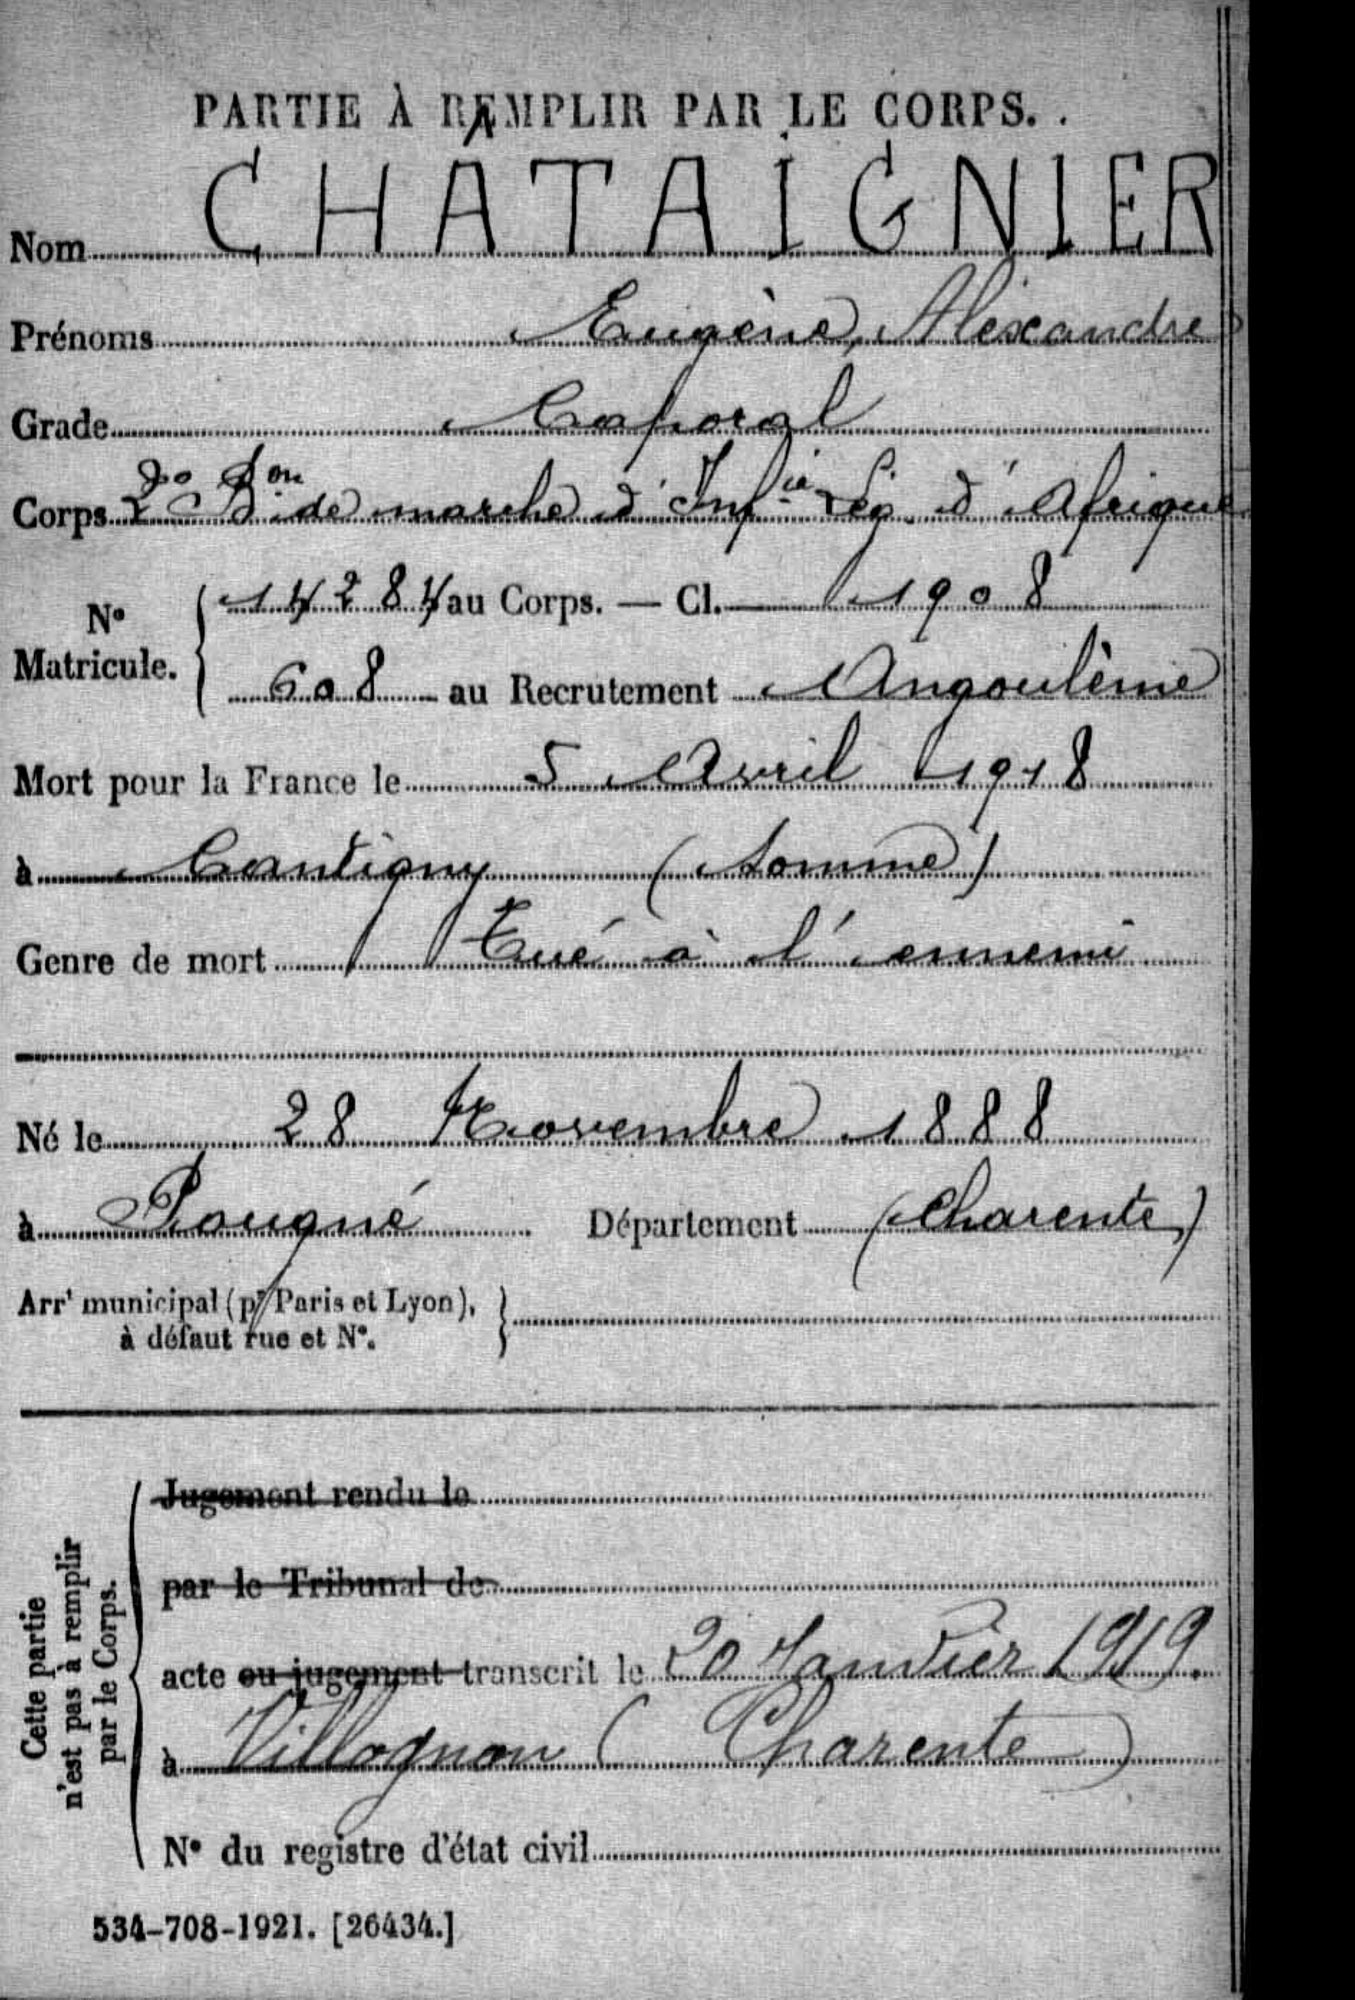 PARTIE À REMPLIR PAR LE CORPS.
Nom CHÂTAIGNIER
Prénoms Eugène, Alexandre
Grade Caporal
Corps 2e Bon de marche d'Infie Lég. d'Afrique
No Matricule. 14284 au Corps. — Cl. 1908
608 au Recrutement Angoulême
Mort pour la France le 5 Avril 1918
à Cantigny (Somme)
Genre de mort Tué à l'ennemi
Né le 28 Novembre 1888
à Pougné Département (Charente)
Arrt municipal (pr Paris et Lyon),
à défaut rue et No.
Cette partie
n'est pas à remplir
par le Corps.
Jugement rendu le
par le Tribunal de
acte ou jugement transcrit le 20 Janvier 1919.
à Villognon (Charente)
No du registre d'état civil
534-708-1921. [26434.]